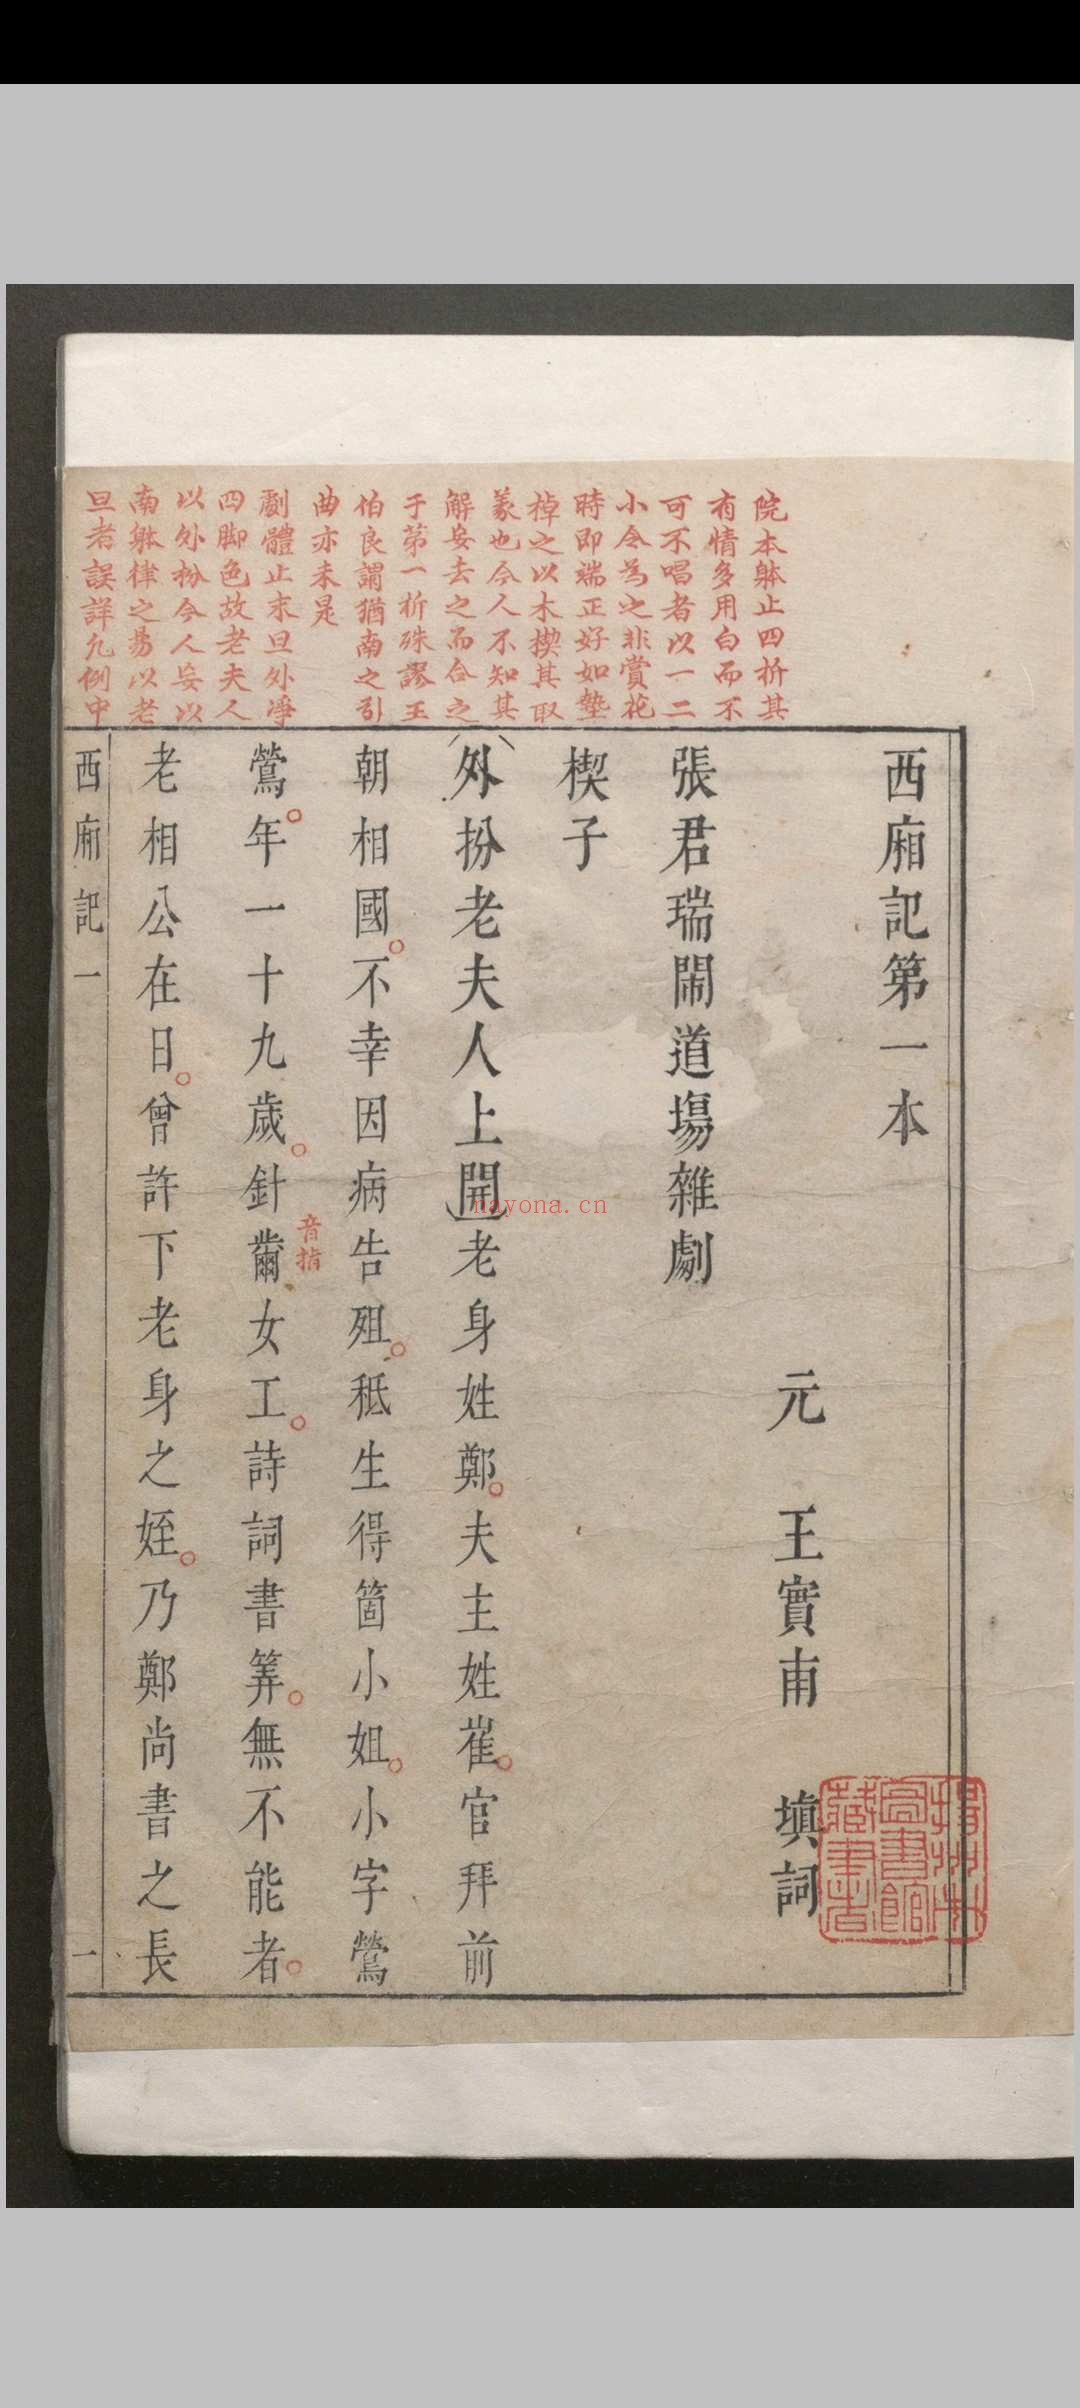 院本躰止四折其
有情多用白而不
可不唱者以一二
小令為之非賞花
時即端正好如墊
棹之以木楔其取
義也今人不知其
解妄去之而合之
于苐一折殊謬王
伯良謂猶南之引
曲亦未是
劇體止末旦外淨
四脚色故老夫人
以外扮今人妄以
南躰律之易以老
旦者誤詳凢例中
西廂記第一本
元 王實甫 填詞
張君瑞閙道塲雜劇
楔子
外扮老夫人上開老身姓鄭夫主姓崔官拜前
朝相國不幸因病告殂秪生得箇小姐小字鶯
鶯年一十九歲針黹女工詩詞書筭無不能者
音指
老相公在日曾許下老身之姪乃鄭尚書之長
西廂記 一
一
nayona.cn